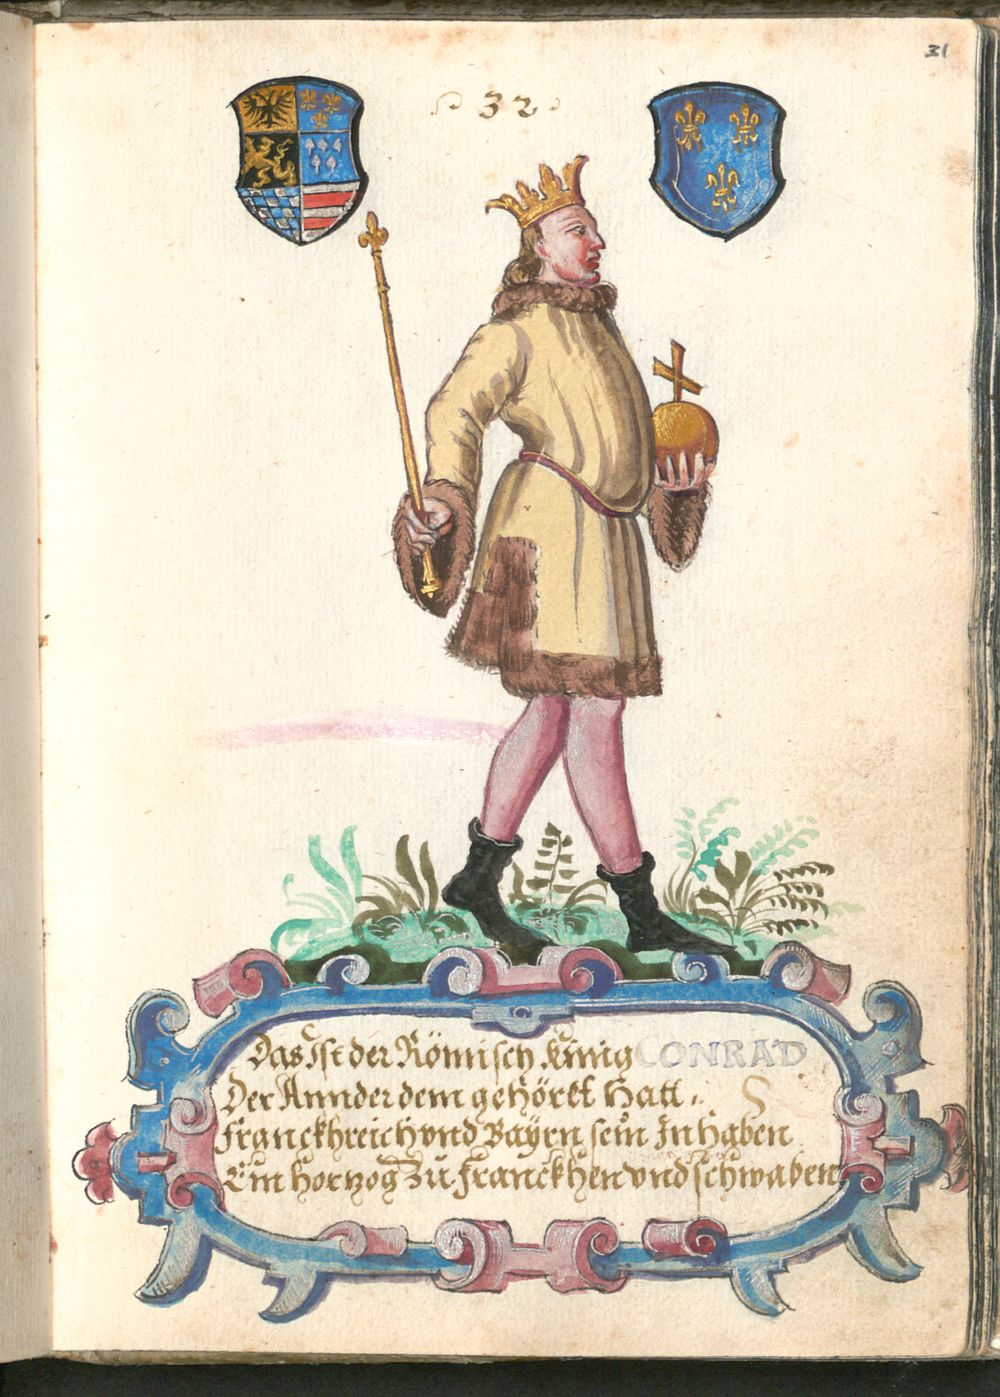 31
32
Das Ist der Römisch Künig CONRAD
Der Annder dem gehörtt Hatt S
Franckhreich vnd Bayrn sein Inhaben
Ein hertzog Zů Franckhen vnd schwaben